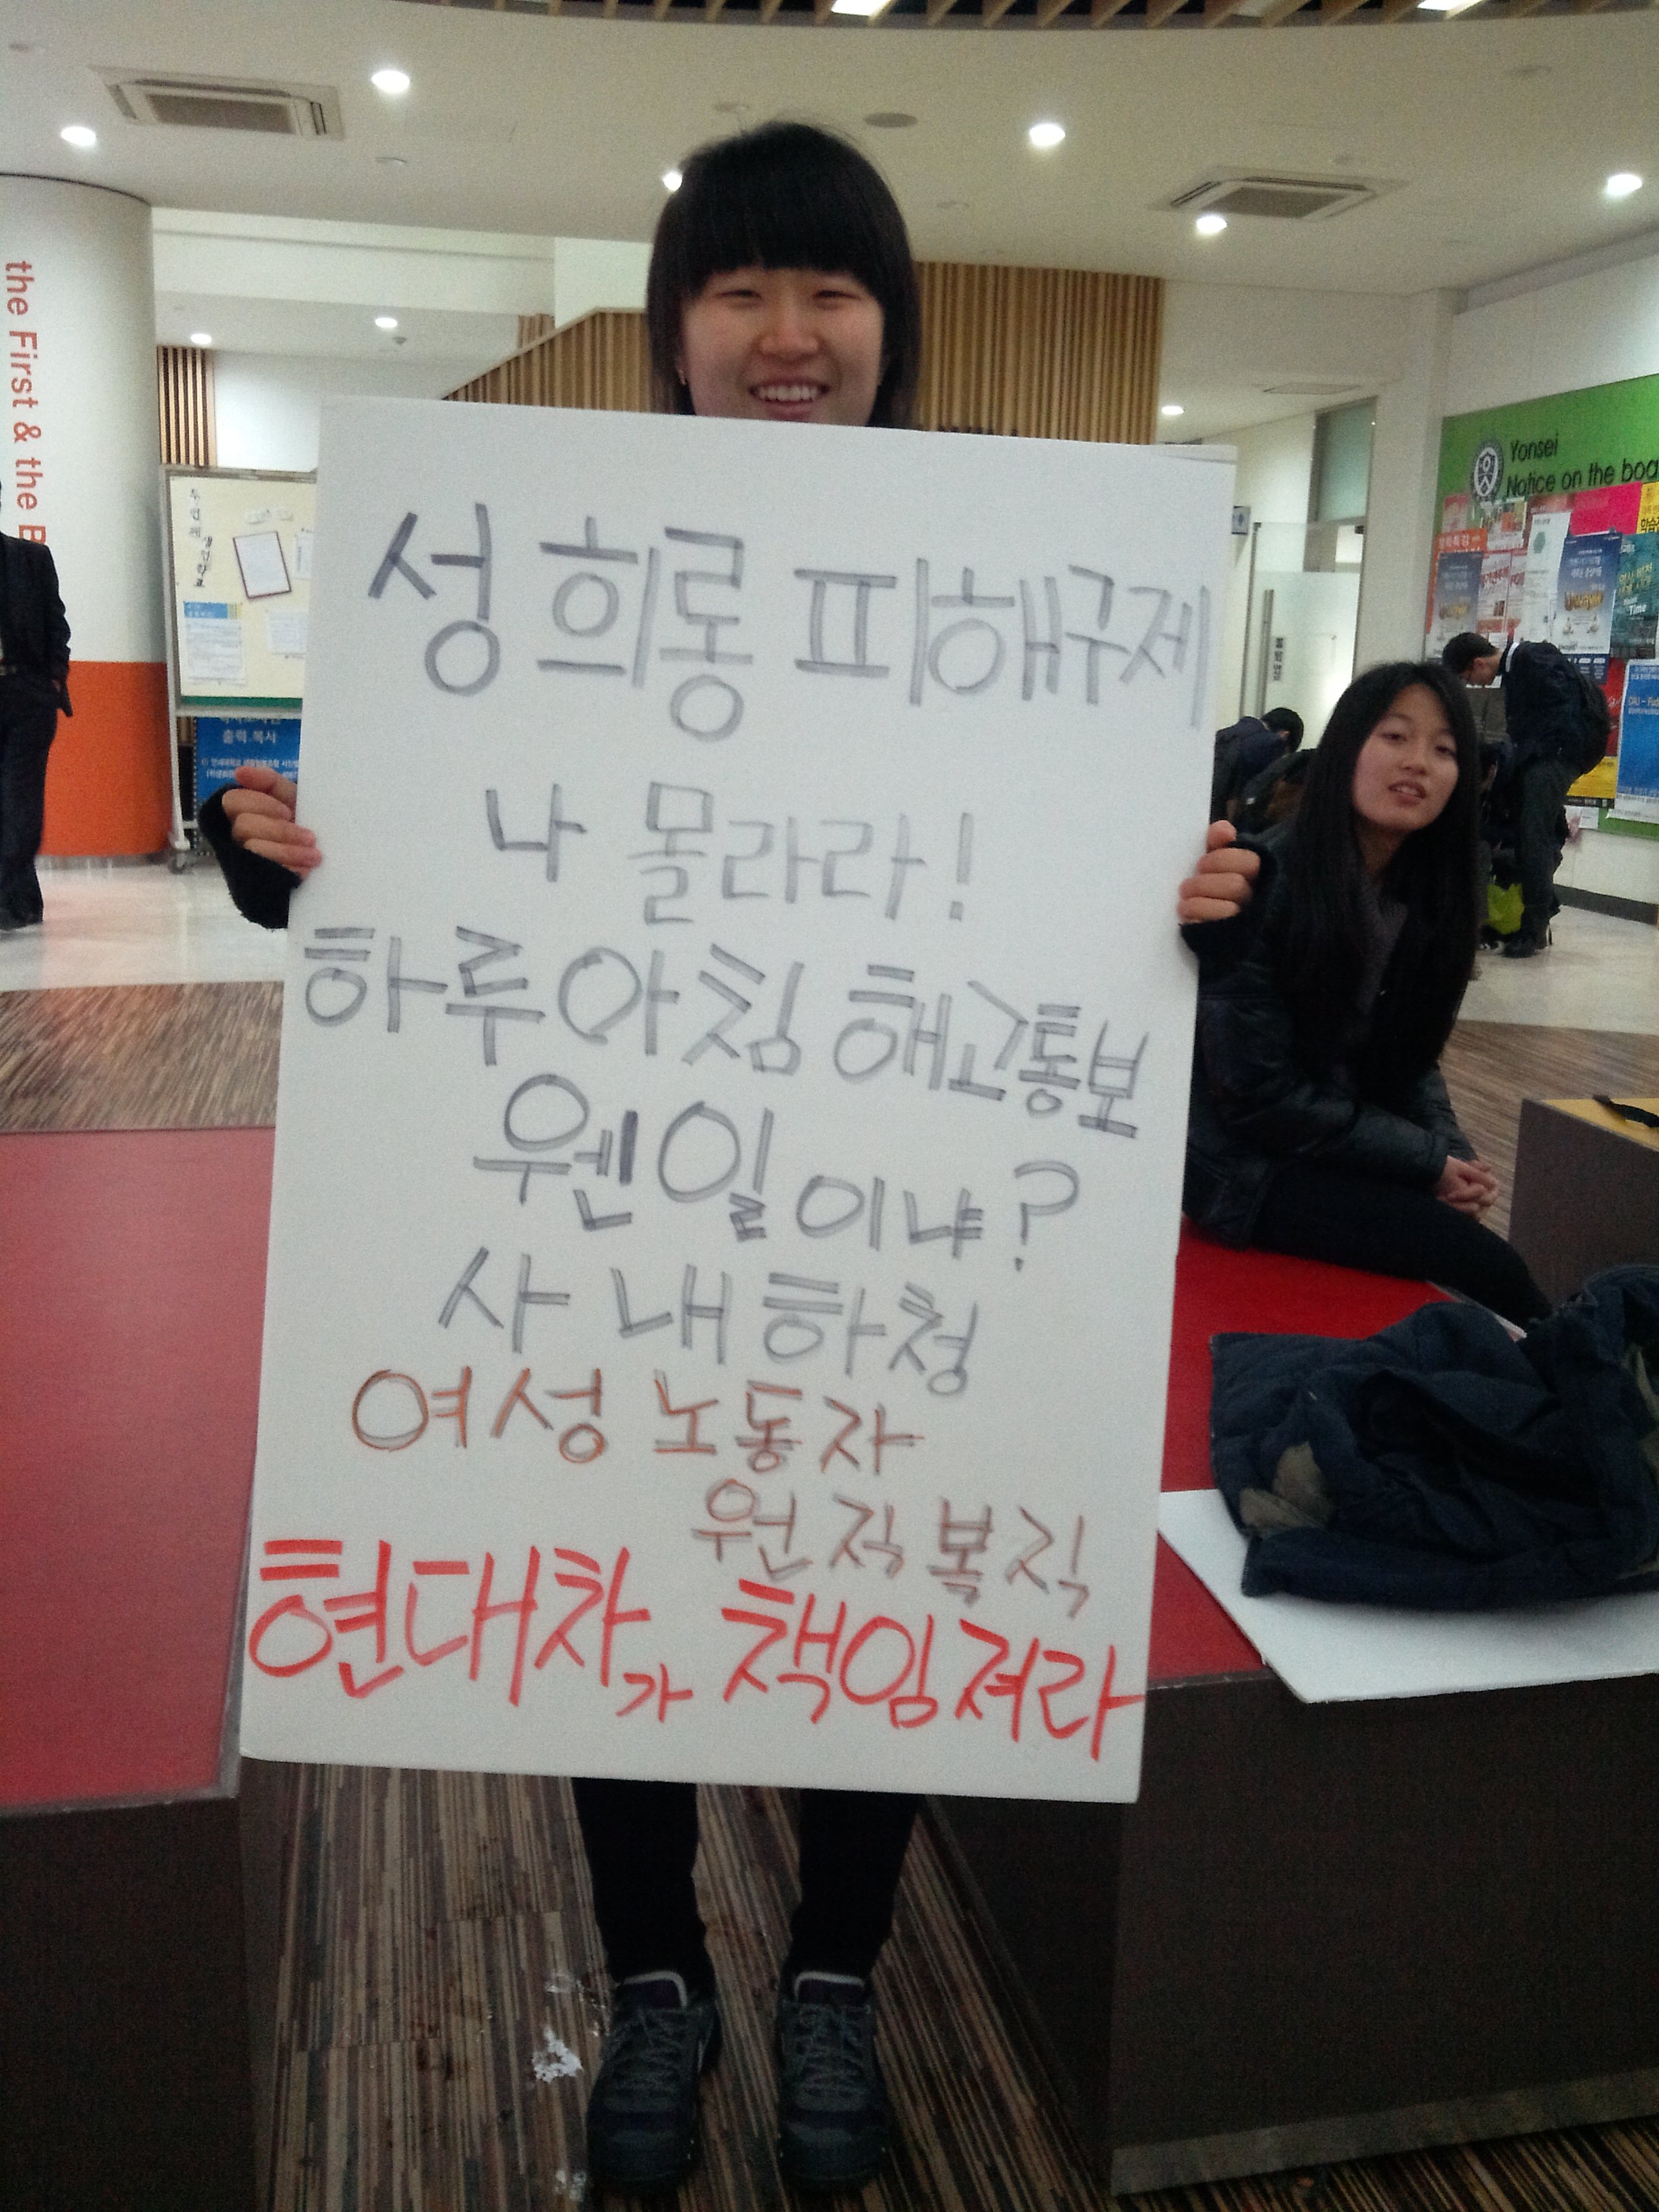 성희롱 피해구제
나 몰라라!
하루아침 해고통보
웬일이냐?
사내하청
여성 노동자
원직복직
현대차가 책임져라
the First & the B
Yonsei
Notice on the boa
출력.복사
Time